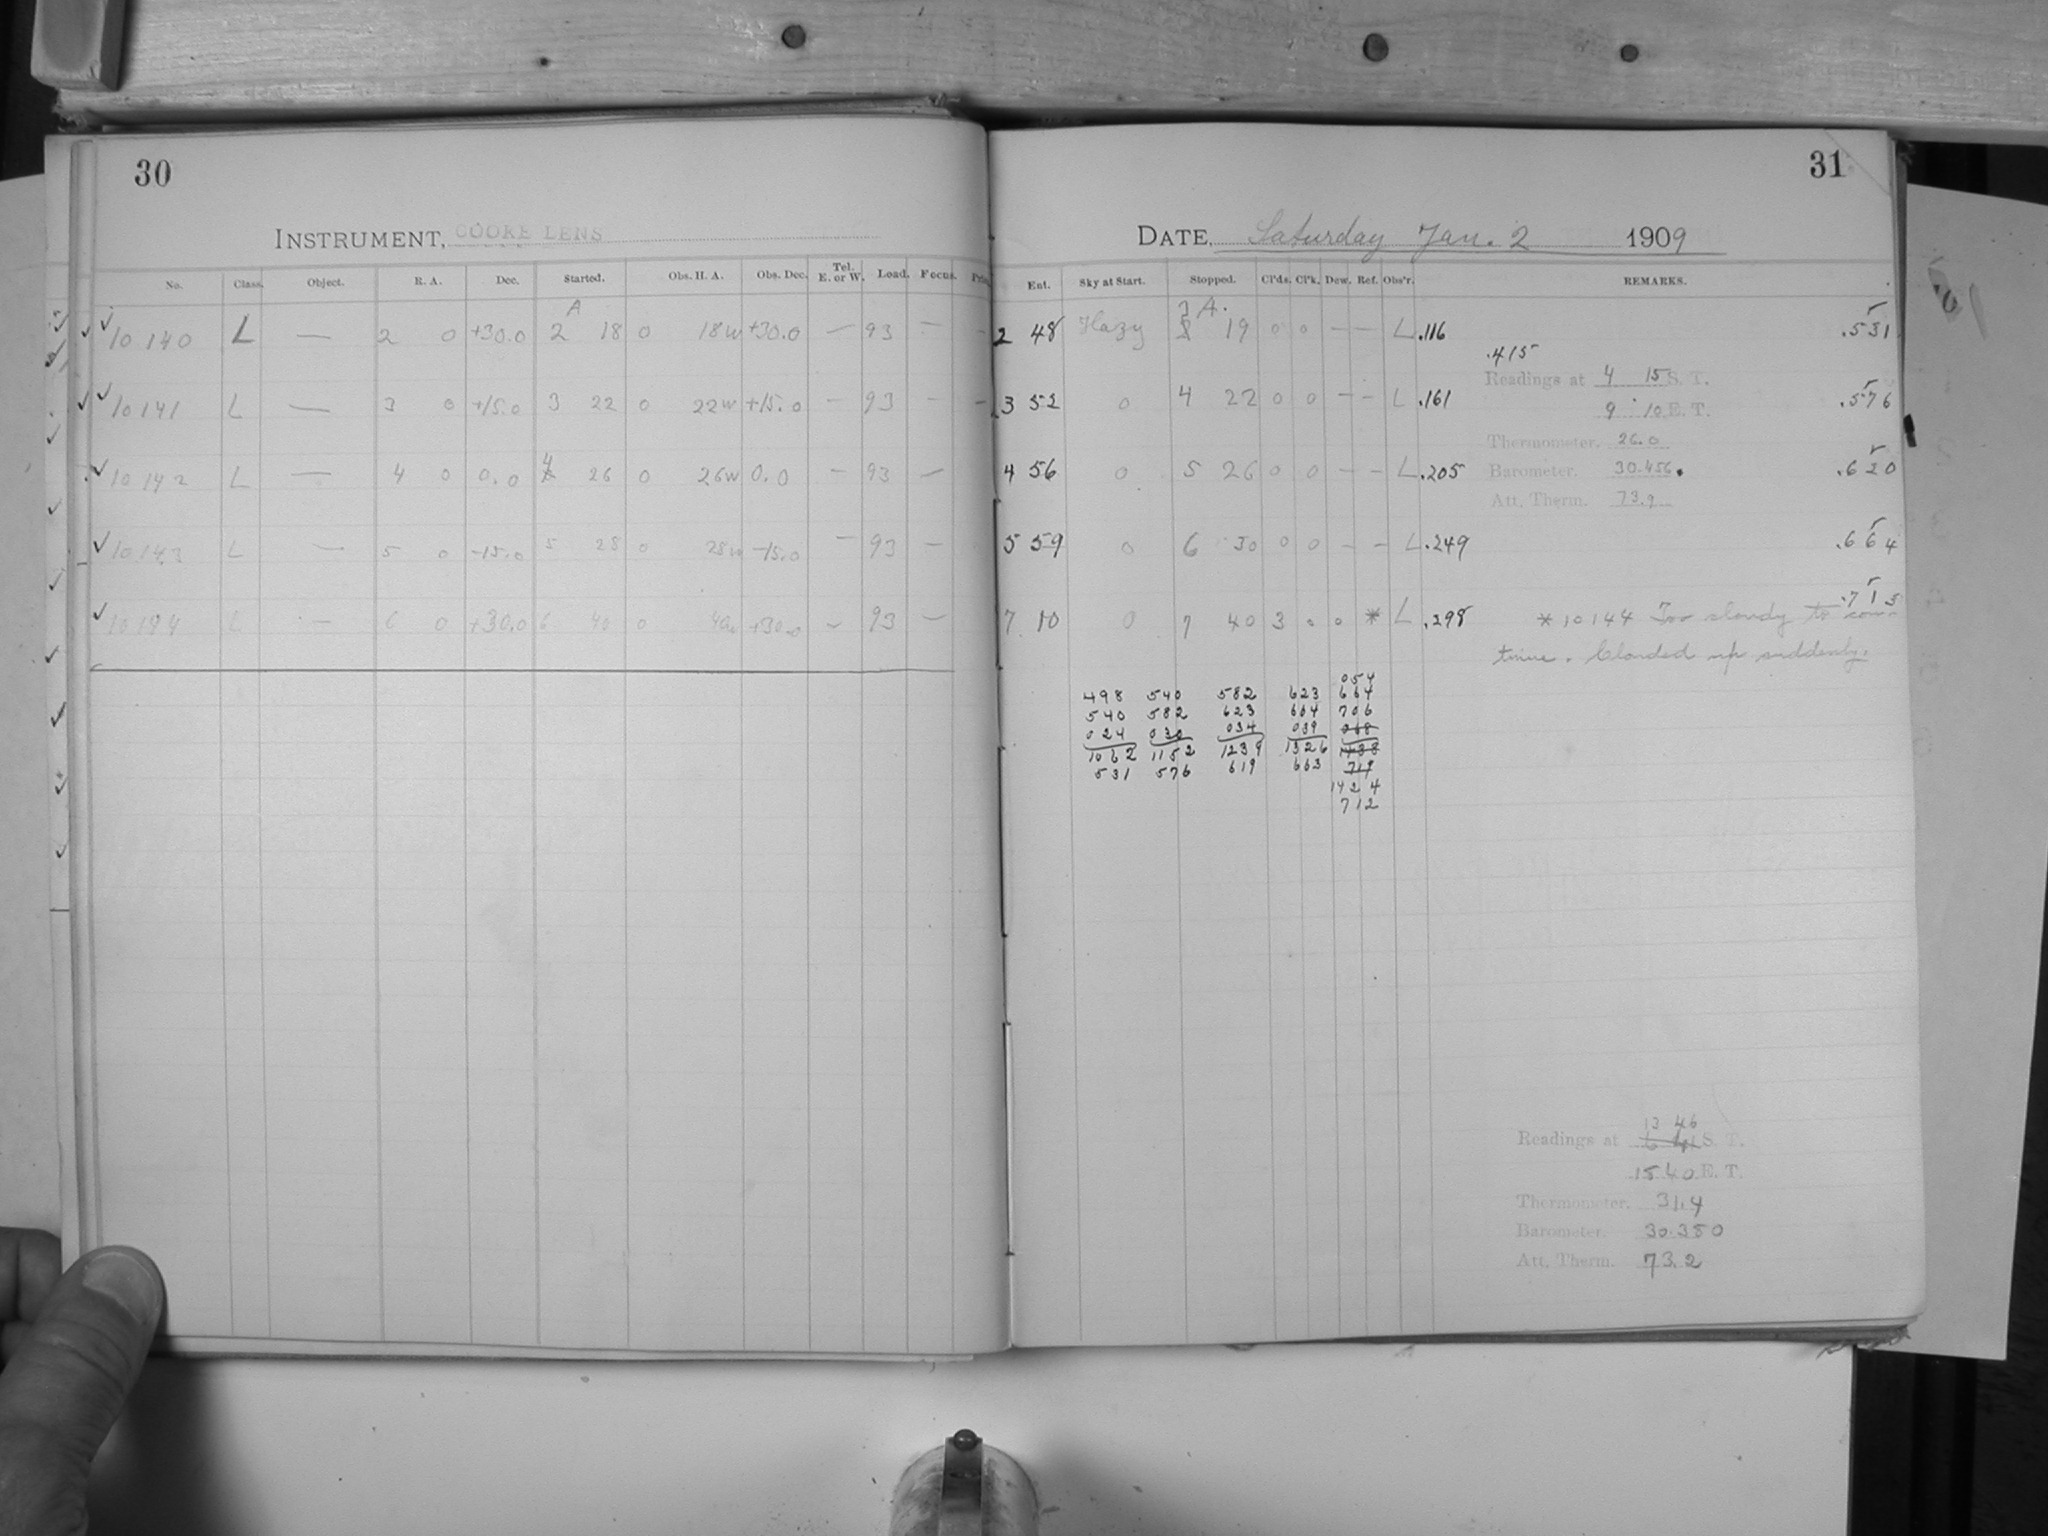 30
INSTRUMENT, COOKE LENS
No. Class. Object. R. A. Dec. Started. Obs. H. A. Obs. Dec. Tel. E. or W. Load. Focus.
A
10 140 L — 2 0 +30.0 2 18 0 18w +30.0 — 93 —
10 141 L — 3 0 +15.0 3 22 0 22w +15.0 — 93 —
10 142 L — 4 0 0.0 4 26 0 26w 0.0 — 93 —
10 143 L — 5 0 -15.0 5 28 0 28w -15.0 — 93 —
10 144 L — 6 0 +30.0 6 40 0 40w +30.0 — 93 —
31
DATE, Saturday Jan. 2 1909
Ent. Sky at Start. Stopped. Cl'ds. Cl'k. Dew. Ref. Obs'r. REMARKS.
3 A.
2 48 Hazy 19 0 0 — — L .116 .531
.415
Readings at 4 15 S. T.
3 52 0 4 22 0 0 — — L .161 .576
9 10 E. T.
Thermometer. 26.0
4 56 0 5 26 0 0 — — L .205 .620
Barometer. 30.456
Att. Therm. 73.9
5 59 0 6 30 0 0 — — L .249 .664
.713
7 10 0 7 40 3 0 0 * L .298 * 10144 Too cloudy to con-
tinue. Clouded up suddenly.
054
498 540 582 623 664
540 582 623 664 706
024 030 034 039 068
1062 1152 1239 1326 1438
531 576 619 663 719
1424
712
13 46
Readings at S. T.
15 40 E. T.
Thermometer. 31.4
Barometer. 30.380
Att. Therm. 73.2